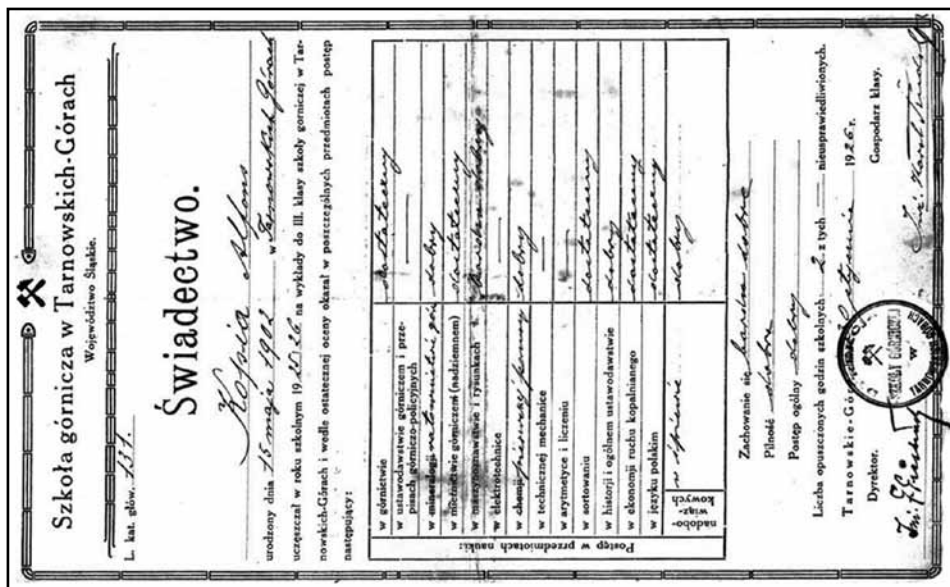 Szkoła górnicza w Tarnowskich-Górach
Województwo Śląskie.
L. kat. główn. 131.
Świadectwo.
Kopia Alfons
urodzony dnia 15 maja 1902 w Tarnowskich Górach
uczęszczał w roku szkolnym 1925/26 na wykłady do III. klasy szkoły gorniczej w Tar-
nowskich-Górach i wedle ostatecznej oceny okazał w poszczególnych przedmiotach postęp
następujący:
Postęp w przedmiotach nauki:
w górnictwie dostateczny
w ustawodawstwie górniczem i prze-
pisach górniczo-policyjnych —
w mineralogji dobry
w miernictwie górniczem (nadziemnem) dostateczny
w maszynoznawstwie i rysunkach dobry
w elektrotechnice —
w chemji dobry
w technicznej mechanice —
w arytmetyce i liczeniu —
w sortowaniu dostateczny
w historji i ogólnem ustawodawstwie dobry
w ekonomji ruchu kopalnianego dostateczny
w języku polskim dostateczny
nadobo-
wiąz-
kowych
w śpiewie dobry
Zachowanie się bardzo dobre
Pilność dobra
Postęp ogólny dobry
Liczba opuszczonych godzin szkolnych 2 z tych — nieusprawiedliwionych.
Tarnowskie-Góry 1926 r.
Dyrektor.
Gospodarz klasy.
SZKOŁY GÓRNICZEJ
w